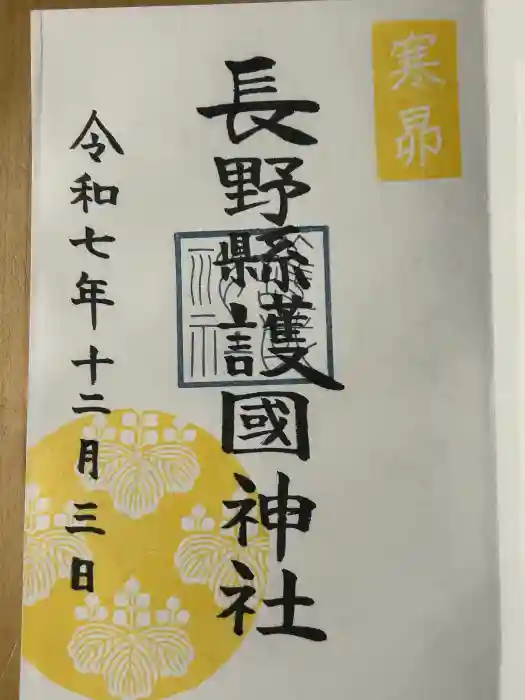 寒昴
長野縣護國神社
令和七年十二月三日